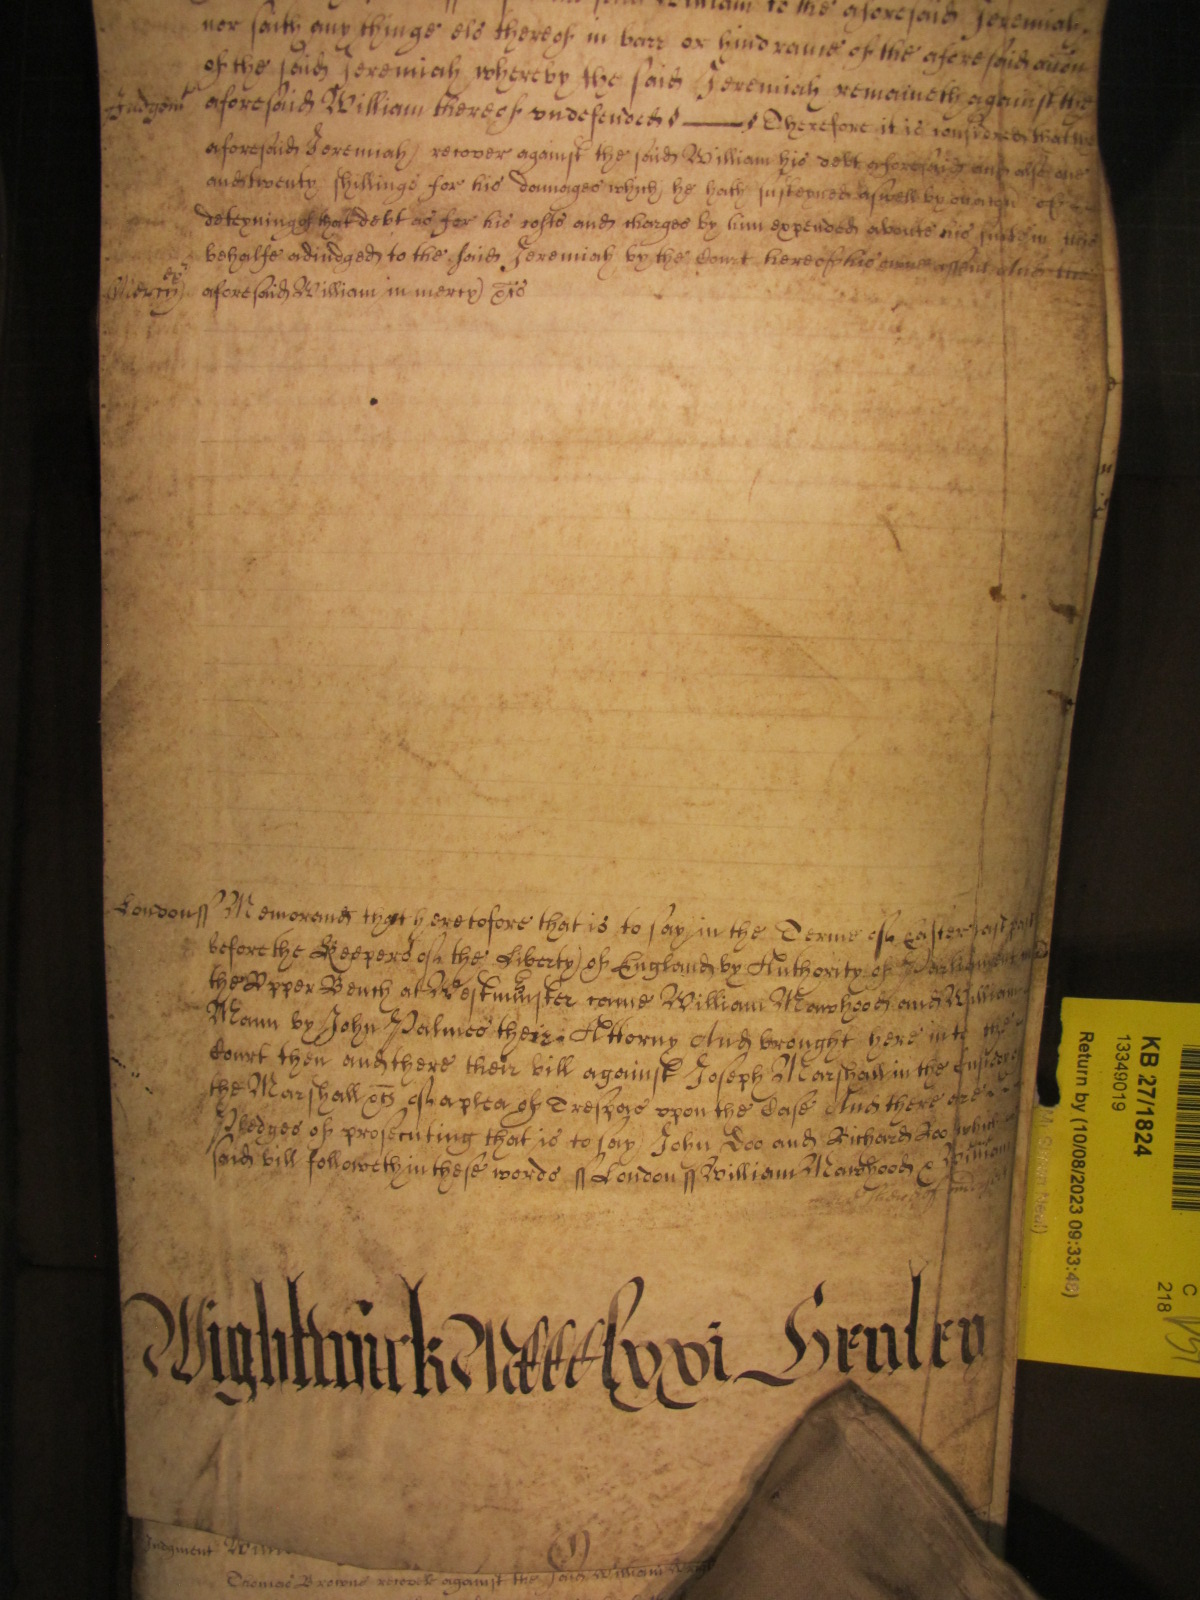 said William to the aforesaid Jeremiah
nor saith any thinge els thereof in barr or hindrance of the aforesaid accon
of the said Jeremiah whereby the said Jeremiah remaineth against the
Judgmt aforesaid William thereof undefended Therefore it is considered that the
aforesaid Jeremiah recover against the said William his debt aforesaid and also one
and twenty shillings for his damages which he hath susteyned aswell by occasion of
deteyning of that debt as for his costs and charges by him expended aboute his suite in this
behalfe adiudged to the said Jeremiah by the Court hereof his owne assent And the
Mercy aforesaid William in mercy &c
London ss Memorand that heretofore that is to say in the Terme of Easter last past
before the Keepers of the Liberty of England by Authority of Parliament
the Upper Bench at Westminster came William Mawhood and William
Mann by John Palmes their Attorny And brought here into the
Court then and there their bill against Joseph Marshall in the Custody
the Marshall &c of a plea of Trespas upon the Case And there are
Pledges of prosecuting that is to say John Doo and Richard Roo which
said bill followeth in these words ss London ss William Mawhood & William
Wightwick Mcccclxxvi Henley
Judgment
Thomas Browne recover against the said William
KB 27/1824
13349019
Return by (10/08/2023 09:33:48)
C
218